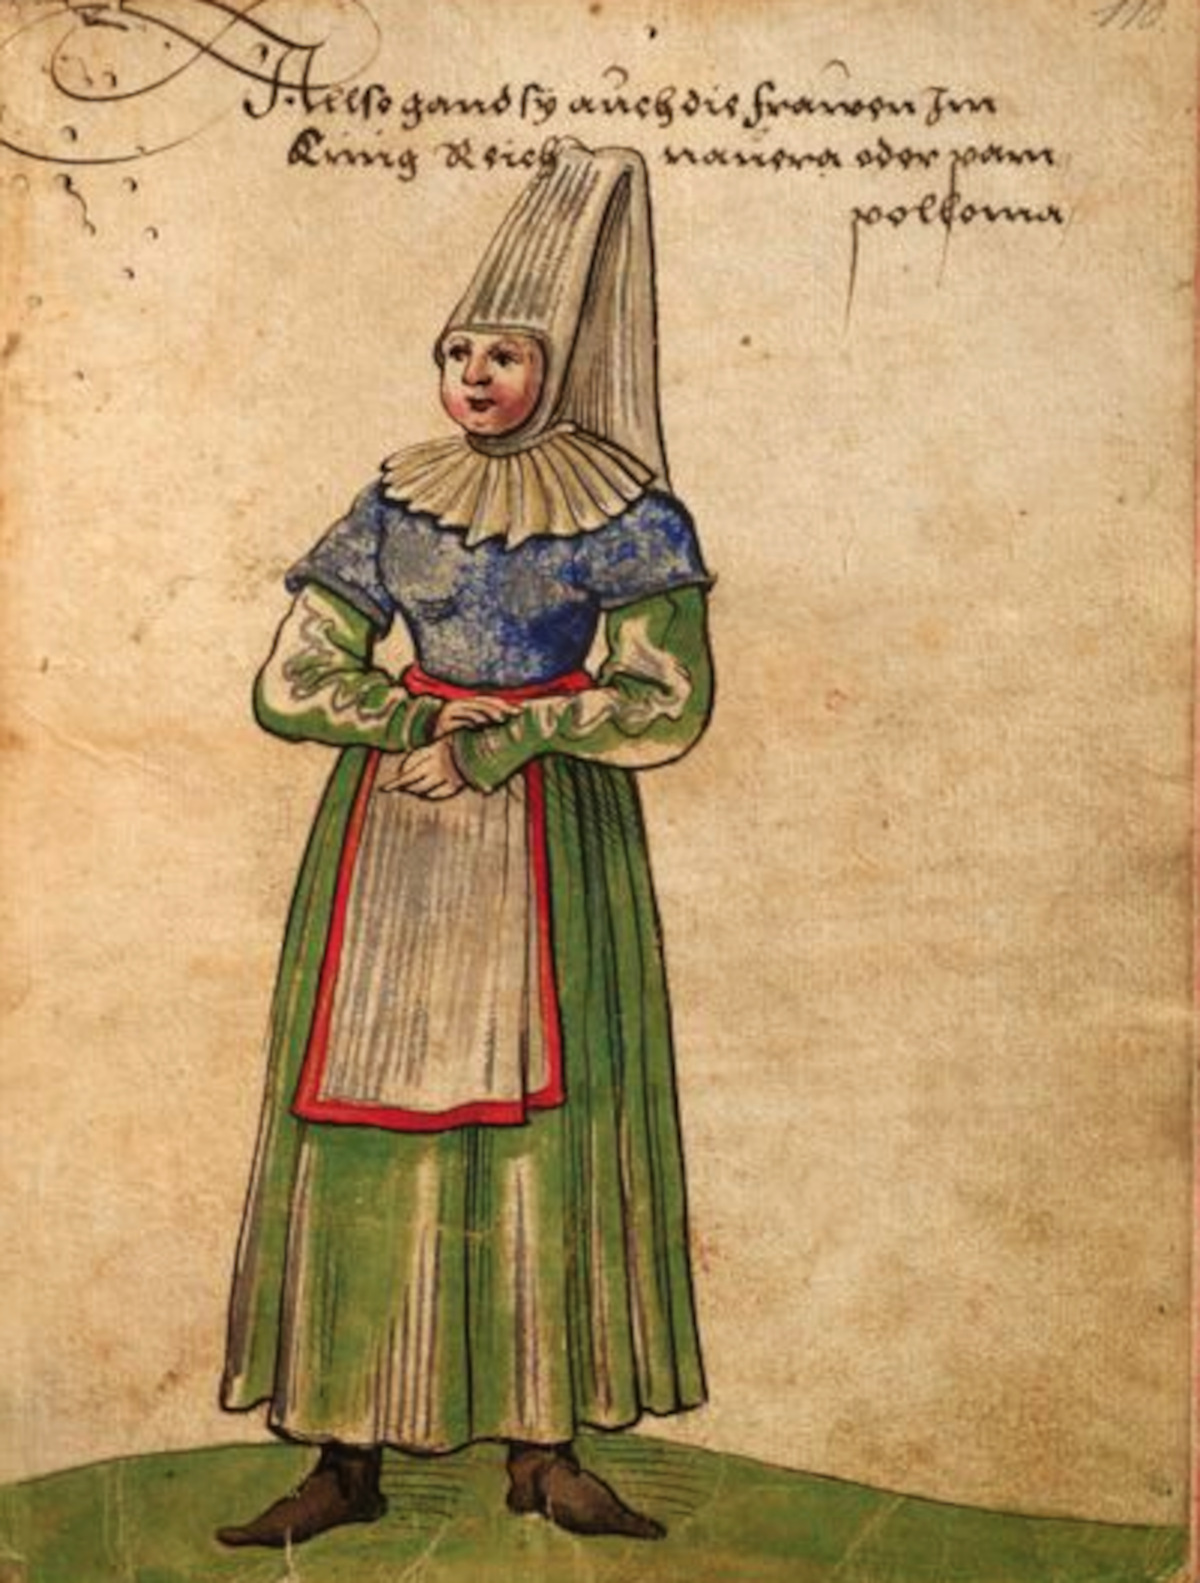 110
Allso gand sy auch die frawen Im
Künig Reich nauera oder pam
polloma